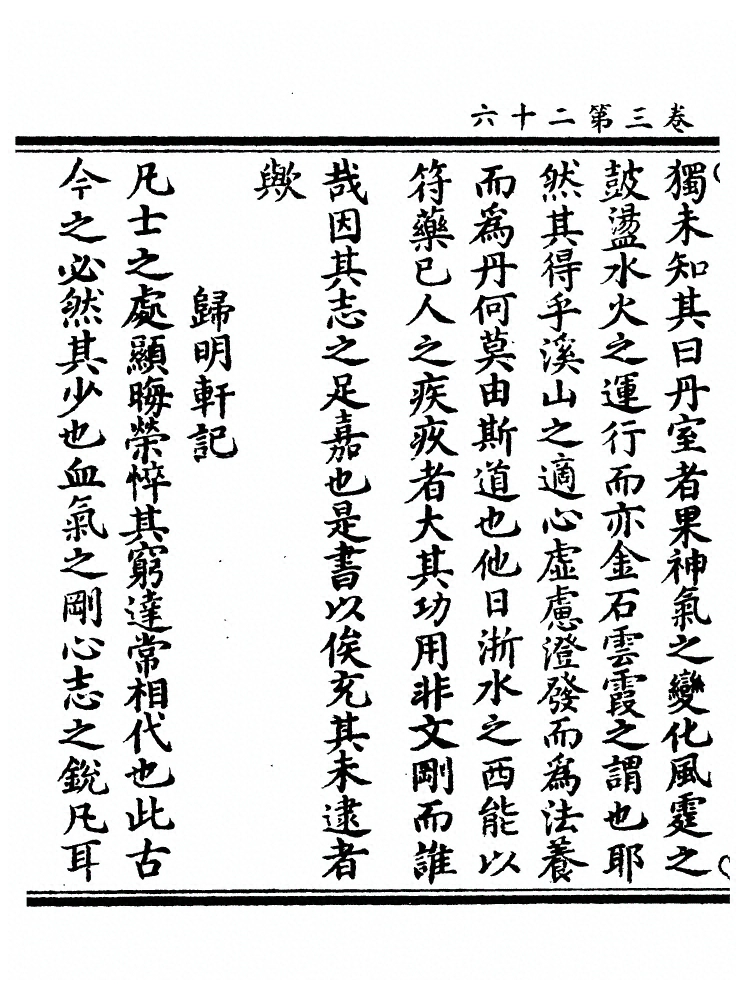 卷三第二十六
獨未知其曰丹室者果神氣之變化風霆之
鼓盪水火之運行而亦金石雲霞之謂也耶
然其得乎溪山之適心虛慮澄發而爲法養
而爲丹何莫由斯道也他日浙水之西能以
符藥已人之疾疢者大其功用非文剛而誰
哉因其志之足嘉也是書以俟充其未逮者
歟
歸明軒記
凡士之處顯晦榮悴其窮達常相代也此古
今之必然其少也血氣之剛心志之銳凡耳